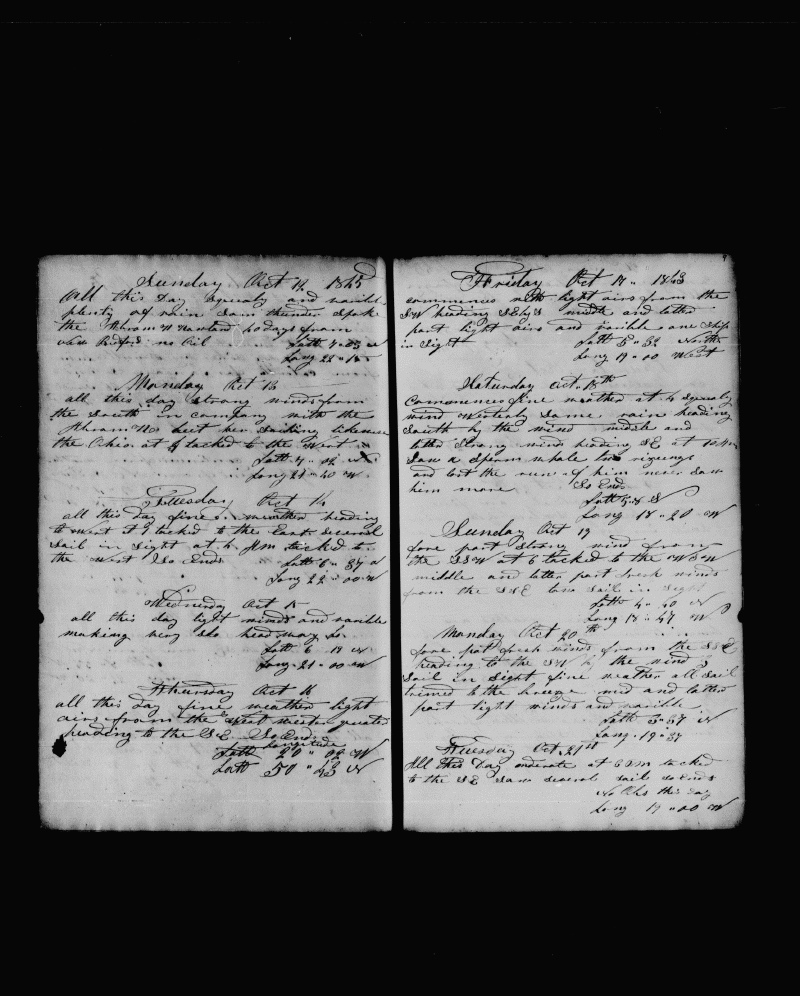 Sunday Oct 12 1845
all this Day Squaly and varible
plenty of rain Sam thunder Spok
the from
New Bedford no Oil Latt 7 " 23 N
Long 22 " 15
Monday Oct 13
all this day Strong winds from
the South in company with the
her Barking likewise
the Ohio at tacked to the West
Latt 7 " 02 N
Long 21 " 40 W
Tuesday Oct 14
all this day fine weather heading
to West at 9 tacked to the East several
Sail in Sight at 4 PM tacked to
the West So Ends Latt 6 " 37 N
Long 22 " 00 W
Wednesday Oct 15
all this day light winds and varible
making very slo head way So
Latt 6 18 N
Long 21 " 00 W
Thursday Oct 16
all this day fine weather light
airs from the
heading to the S.E. So Ends
Longitude
20 " 02 W
Latt 50 " 43 N
9
Friday Oct 17 "
commences with light airs from the
SW heading SEbyS middle and latter
part light airs and varible one Ship
in Sight Latt 5 " 32 North
Long 19 " 00 West
Saturday Oct. 18th
Commences fine weather at 4 Squaly
wind Westerly Some rain heading
South by the wind middle and
latter Strong wind heading SE at
Saw a Sperm whale
and lost the run of him never Saw
him more So Ends
Latt N
Long 18 " 20 W
Sunday Oct 19
fore part Strong wind from
the SSW at 6 tacked to the WSW
middle and latter part fresh winds
from the SSE two Sail in Sight
Latt 4 " 40 N
Long 18 " 47 W
Monday Oct 20th
fore pat fresh winds from the SSE
heading to the SW by the wind 3
Sail in Sight fine weather all Sail
trimed to the breeze mid and latter
part light winds and varible
Latt 3 " 37 N
Long. 19 " 37
Tuesday Oct. 21st
All this Day moderate at 6 AM tacked
to the SE Saw several Sail So Ends
No Obs this day
Long 19 " 00 W